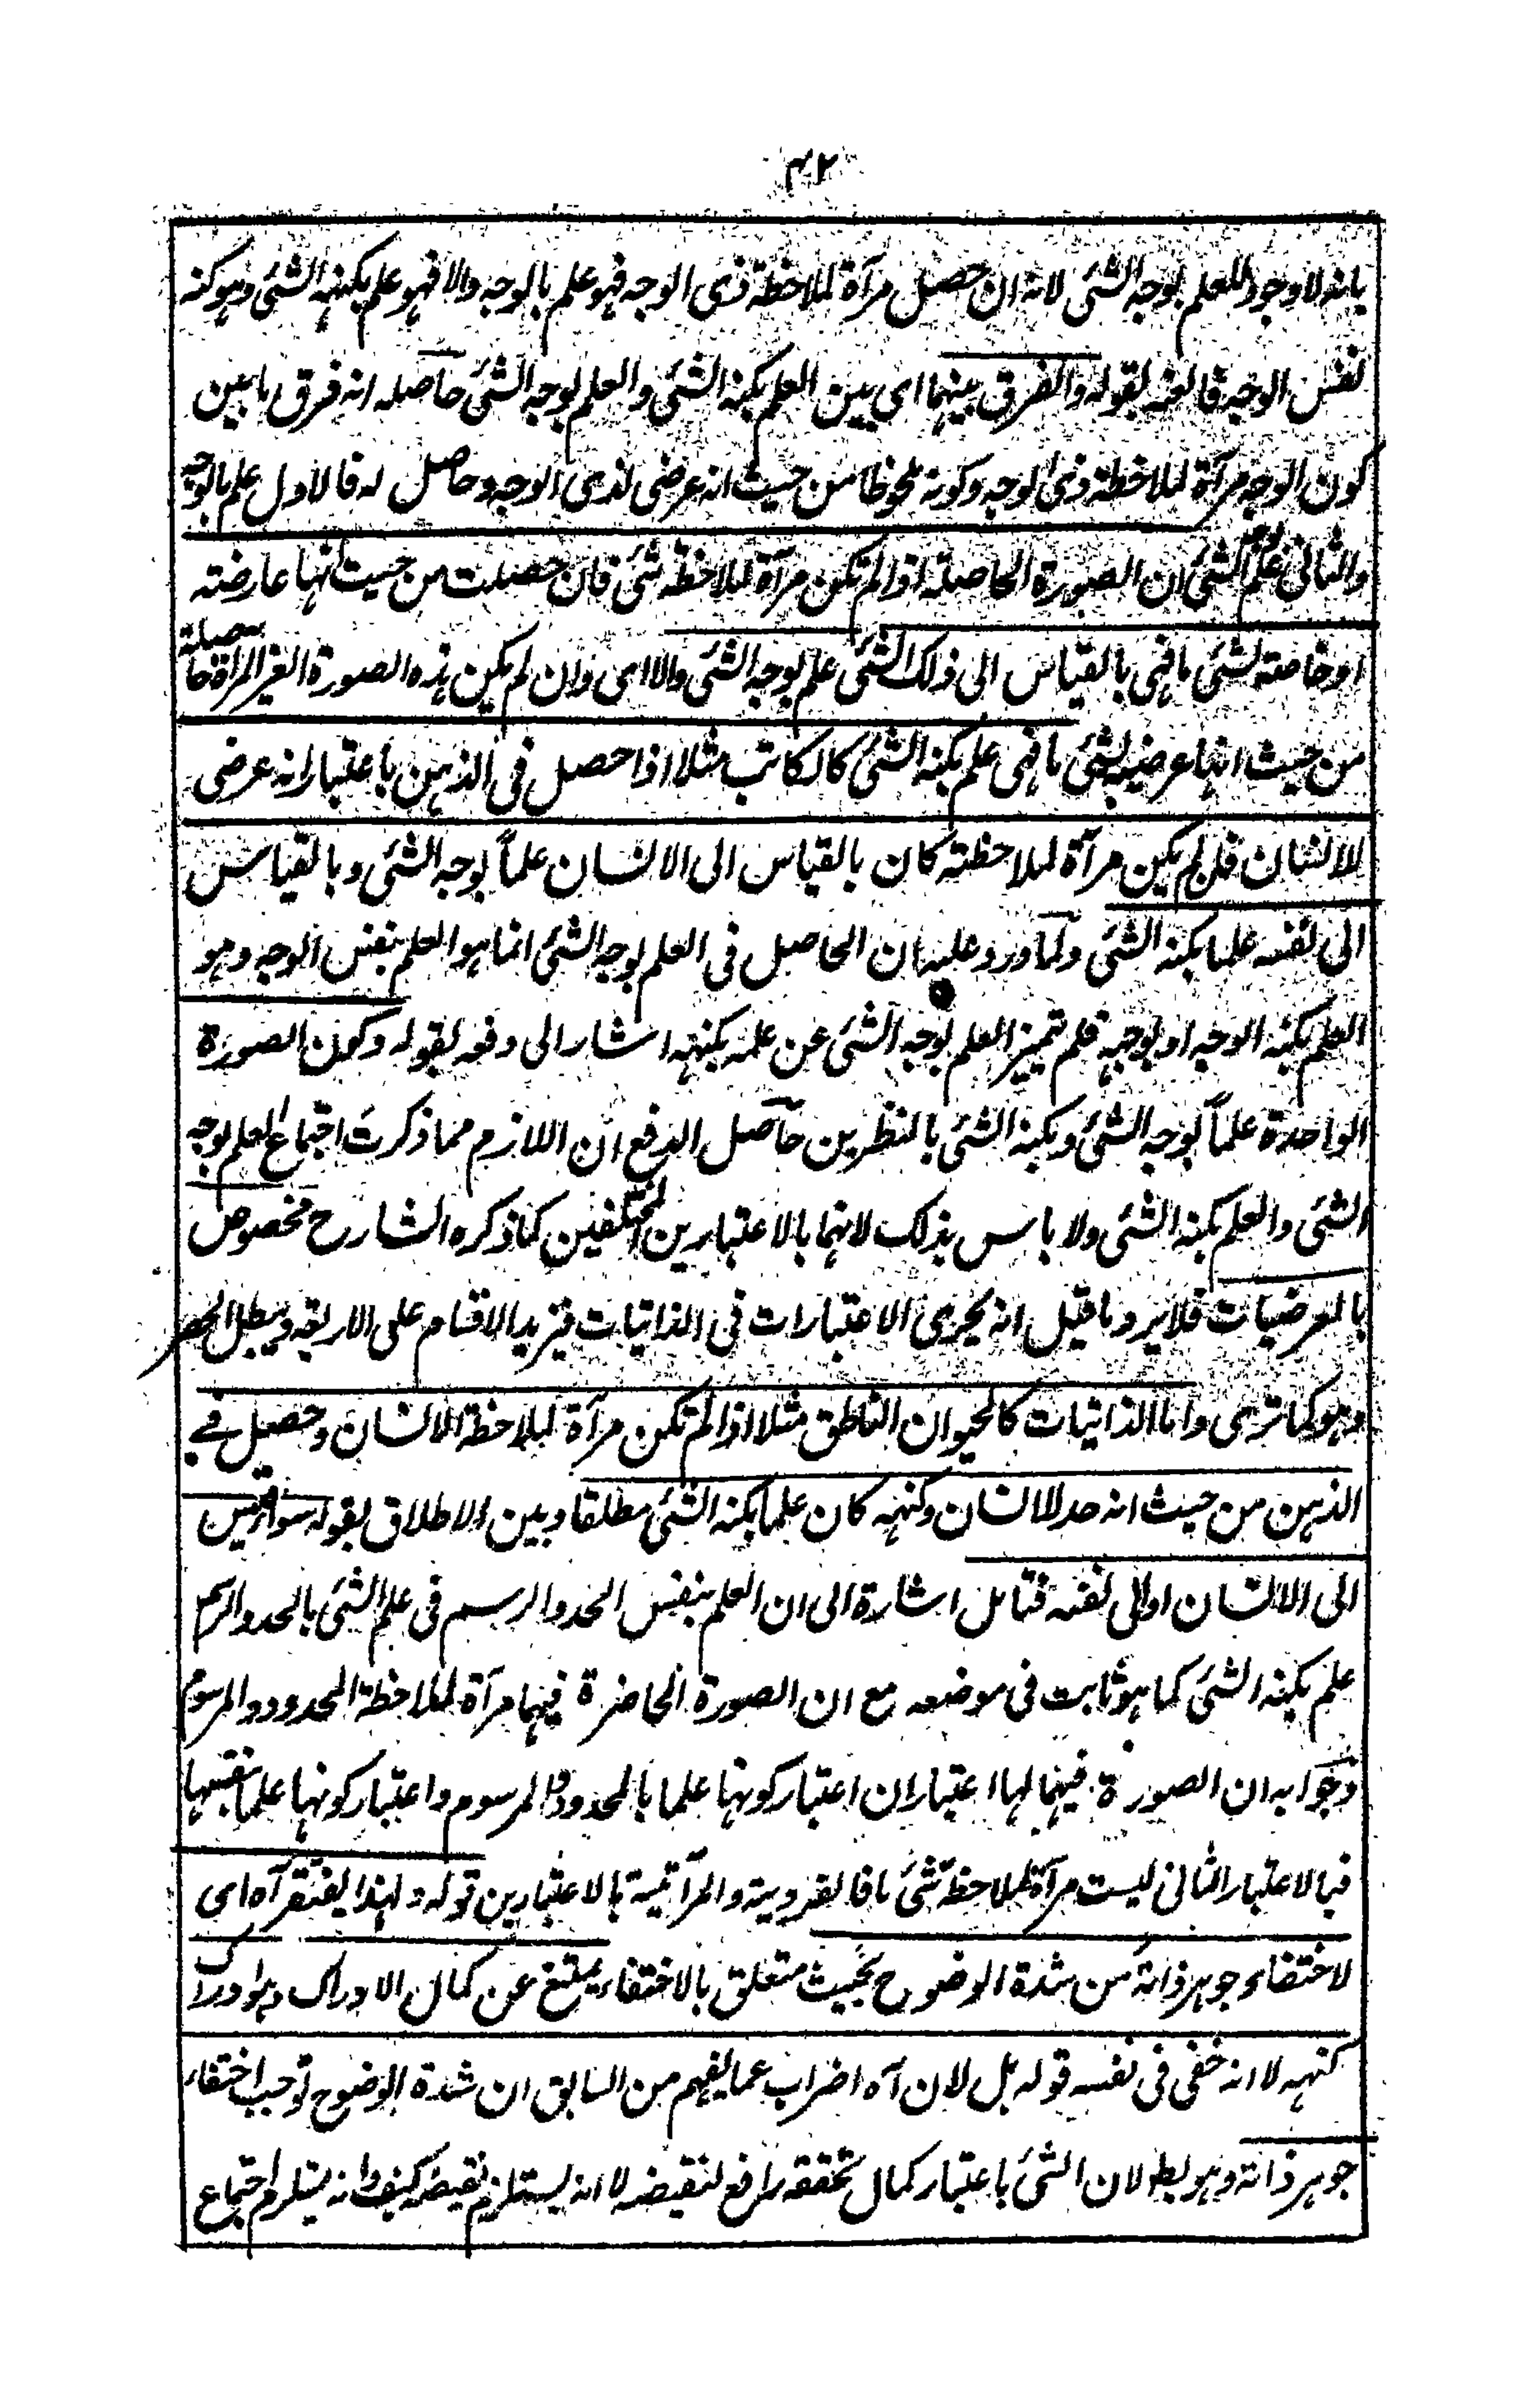 ٤٢
بانه لا وجود للعلم بوجه الشئ لانه ان حصل مرآة لملاحظة ذى الوجه فهو علم بالوجه والا فهو علم بكنهه الشئ وهو كنه
نفس الوجه فالفه بقوله والفرق بينهما اى بين العلم بكنه الشئ والعلم بوجه الشئ حاصله انه فرق ما بين
كون الوجه مرآة لملاحظة ذى الوجه وكونه ملحوظا من حيث انه عرضى لذى الوجه وحاصل له فالاول علم بالوجه
والثانى علم بوجه الشئ ان الصورة الحاصلة اذا لم تكن مرآة لملاحظة شئ فان حصلت من حيث انها عارضته
او خاصته لشئ ما فهى بالقياس الى ذلك الشئ علم بوجه الشئ والا اى وان لم يكن هذه الصورة الغير المرآة حاصلة
من حيث انها عرضية لشئ ما فهى علم بكنه الشئ كالكاتب مثلا اذا حصل فى الذهن باعتبار انه عرضى
للانسان فان لم يكن مرآة لملاحظته كان بالقياس الى الانسان علماً بوجه الشئ وبالقياس
الى نفسه علما بكنه الشئ ولما ورد عليه ان الحاصل فى العلم بوجه الشئ انما هو العلم بنفس الوجه وهو
العلم بكنه الوجه او بوجهه فلم يتميز العلم بوجه الشئ عن علمه بكنهه اشار الى دفعه بقوله وكون الصورة
الواحدة علماً بوجه الشئ وبكنه الشئ بالنظرين حاصل الدفع ان اللازم مما ذكرت اجتماع العلم بوجه
الشئ والعلم بكنه الشئ ولا باس بذلك لانهما بالاعتبارين المختلفين كما ذكره الشارح مخصوص
بالعرضيات فلا يرد ما قيل انه يجرى الاعتبارات فى الذاتيات فتزيد الاقسام على الاربعة ويبطل الحصر
وهو كما ترى واما الذاتيات كالحيوان الناطق مثلا اذا لم تكن مرآة لملاحظة الانسان وحصل فى
الذهن من حيث انه حد للانسان وكنهه كان علما بكنه الشئ مطلقا وبين الاطلاق بقوله سواء قيس
الى الانسان او الى نفسه فتامل اشارة الى ان العلم بنفس الحد والرسم فى علم الشئ بالحد والرسم
علم بكنه الشئ كما هو ثابت فى موضعه مع ان الصورة الحاضرة فيهما مرآة لملاحظة المحدود والمرسوم
وجوابه ان الصورة فيهما لها اعتباران اعتبار كونها علما بالمحدود والمرسوم واعتبار كونها علما بنفسها
فبالاعتبار الثانى ليست مرآة لملاحظة شئ ما فالفردية والمرآتية بالاعتبارين قوله ولهذا يفتقر آه اى
لاختفاء جوهر ذاته من شدة الوضوح بحيث متعلق بالاختفاء يمتنع عن كمال الادراك وهو ادراك
كنهه لا انه خفى فى نفسه قوله بل لان آه اضراب عما يفهم من السابق ان شدة الوضوح توجب اختفاء
جوهر ذاته وهو بط لان الشئ باعتبار كمال تحققه رافع لنقيضه لا انه يستلزم نقيضه كيف وانه يستلزم اجتماع